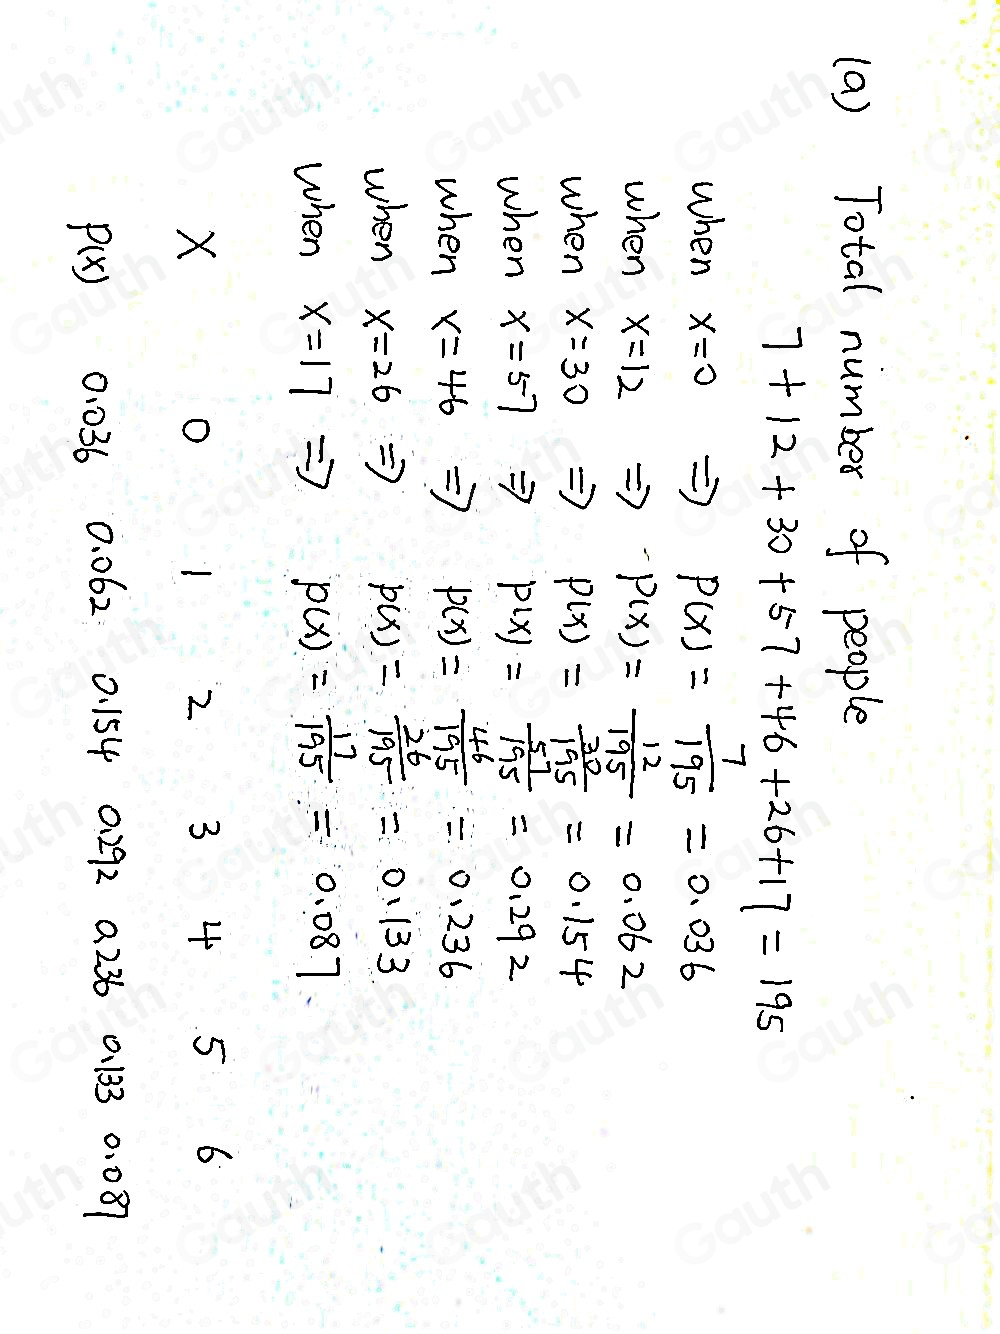 (a) Total number of people
7 + 12 + 30 + 57 + 46 + 26 + 17 = 195
when x=0 ⇒ P(x) = 7/195 = 0.036
when x=12 ⇒ P(x) = 12/195 = 0.062
when x=30 ⇒ P(x) = 30/195 = 0.154
when x=57 ⇒ P(x) = 57/195 = 0.292
when x=46 ⇒ P(x) = 46/195 = 0.236
when x=26 ⇒ P(x) = 26/195 = 0.133
when x=17 ⇒ P(x) = 17/195 = 0.087
X 0 1 2 3 4 5 6
P(x) 0.036 0.062 0.154 0.292 0.236 0.133 0.087